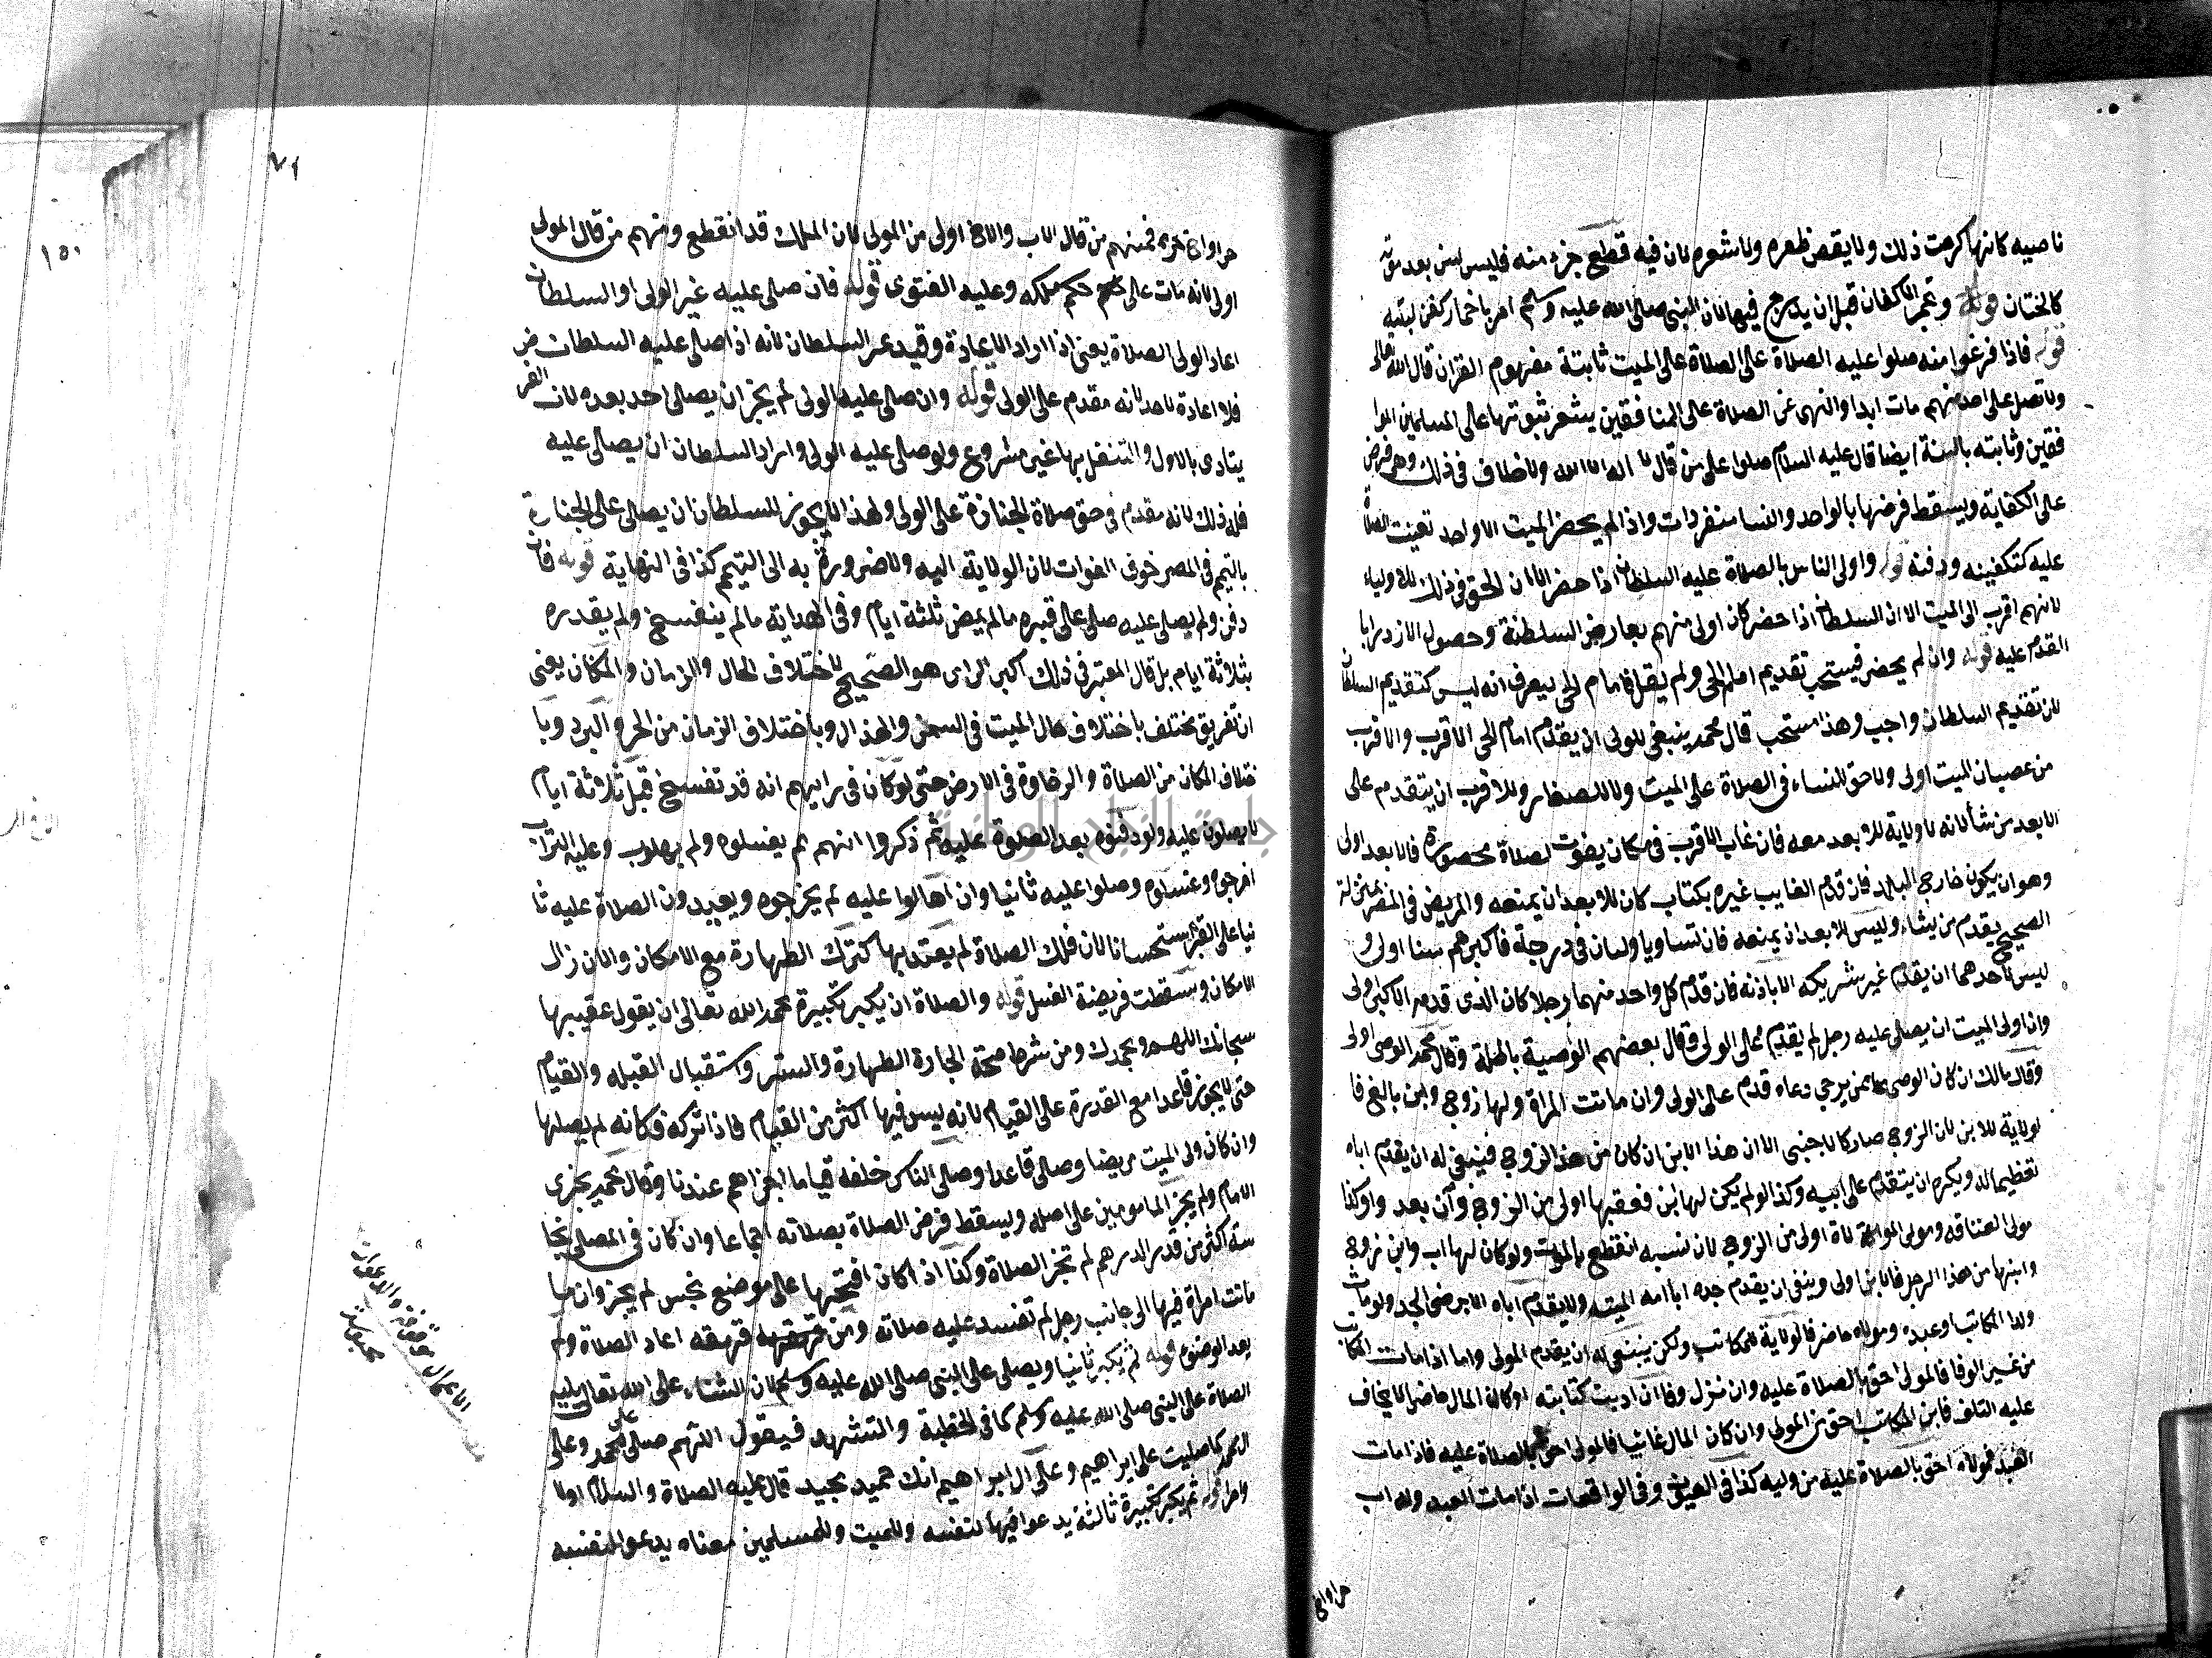 ناصيه كانها كرهت ذلك ولا يقص ظفره ولا شعره لان فيه قطع جزء منه فليس بعد موته
كالختان قوله وتجمر الاكفان قبل ان يدرج فيها لان النبي صلى الله عليه وسلم امر باجمار كفن ابنته
قوله فاذا فرغوا منه صلوا عليه الصلاة على الميت ثابتة مفهوم القران قال الله تعالى
ولا تصل على احد منهم مات ابدا والنهي عن الصلاة على المنافقين يشعر بثبوتها على المسلمين الموا
فقين وثابته بالسنة ايضا قال عليه السلام صلوا على من قال لا اله الا الله ولا خلاف في ذلك وهي فرض
على الكفاية ويسقط فرضها بالواحد والنسا منفردات واذا لم يحضر الميت الا واحد تعينت الصلاة
عليه كتكفينه ودفنه قوله واولى الناس بالصلاة عليه السلطان اذا حضر الا ان الحق في ذلك للاولياء
لانهم اقرب الى الميت الا ان السلطان اذا حضر كان اولى منهم بعارض السلطنة وحصول الازدرا با
لتقدم عليه قوله وان لم يحضر فيستحب تقديم امام الحي ولم يقل فامام الحي ليعرف انه ليس كتقديم السلطان
لان تقديم السلطان واجب وهذا مستحب قال محمد ينبغي للولي ان يقدم امام الحي الاقرب والاقرب
من عصبان الميت اولى ولا حق للنساء في الصلاة على الميت ولا للصغار وللاقرب ان يتقدم على
الابعد من شأ لانه لا ولاية للابعد معه فان غاب الاقرب في مكان يفوت الصلاة بحضوره فالابعد اولى
وهو ان يكون خارج البلد فان قدم الغايب غيره بكتاب كان للابعد ان يمنعه والمريض في المصر بمنزلة
الصحيح يقدم من يشاء وليس للابعد ان يمنعه فان تساويا وليان في درجة فاكبرهم سنا اولى و
ليس لاحدهما ان يقدم غير شريكه الا باذنه فان قدم كل واحد منهما رجلا كان الذي قدمه الاكبر اولى
وان اولى الميت ان يصلي عليه رجل لم يقدم على الولي وقال بعضهم الوصية باطلة وقال محمد الوصي اولى
وقال مالك ان كان الوصي ممن يرجي دعاه قدم على الولي وان ماتت المراة ولها زوج وابن بالغ فا
لولاية للابن لان الزوج صار كالاجنبي الا ان هذا الابن ان كان من هذا الزوج فينبغي له ان يقدم اباه
تعظيما له ويكره ان يتقدم على ابيه وكذا لو لم يكن لها ابن فعصبها اولى من الزوج وان بعد واو كذا
مولى العتاقه ومولى الموالاة اولى من الزوج لان نسبه انقطع بالموت ولو كان لها اب وابن زوج
وابنها من هذا الرجل فالابن اولى وينبغي ان يقدم جده ابا امه الميته ولا يقدم اباه الا برضى الجد ولو مات
ولد المكاتب او عبده ومولاه حاضر فالولاية للمكاتب ولكن ينبغي له ان يقدم المولى واما اذا مات المكاتب
من غير الوفا فالمولى احق بالصلاة عليه وان نزل وفا ان اديت كتابته او كان المال حاضر لا يخاف
عليه التلف فابن المكاتب احق من المولى وان كان المال غائبا فالمولى احق بالصلاة عليه فاذا مات
العبد فمولاه احق بالصلاة عليه من وليه كذا في العيون وفي الواقعات اذا مات العبد وله اب
حر او اخ
٧١
١٥١
حر او اخ حر فمنهم من قال الاب والاخ اولى من المولى لان الملك قد انقطع ومنهم من قال المولى
اولى لانه مات على حكم ملكه وعليه الفتوى قوله فان صلى عليه غير الولي او السلطان
اعاد الولي الصلاة يعني اذا اراد الاعادة وقيد غير السلطان لانه اذا صلى عليه السلطان
فلا اعادة لاحد لانه مقدم على الولي قوله وان صلى عليه الولي لم يجز ان يصلي احد بعده لان الفرض
يتادى بالاول والتنفل بها غير مشروع ولو صلى عليه الولي واراد السلطان ان يصلي عليه
فله ذلك لانه مقدم في حق صلاة الجنازة على الولي ولهذا لا يجوز للسلطان ان يصلي على الجنازة
بالتيمم في المصر خوف الفوات لان الولاية اليه ولا ضرورة به الى التيمم كذا في النهاية قوله فان
دفن ولم يصلى عليه صلى على قبره ما لم يمض ثلثة ايام وفي الهداية ما لم ينفسخ ولم يقدره
بثلاثة ايام بل قال المعتبر في ذلك اكبر الراي هو الصحيح لاختلاف الحال والزمان والمكان يعني
ان تفريق يختلف باختلاف حال الميت في السمن والهزال وباختلاف الزمان من الحر والبرد وبا
ختلاف المكان من الصلاة والرخاوة في الارض حتى لو كان في رايهم انه قد تفسخ قبل ثلاثة ايام
لا يصلون عليه ولو دفنوه بعد الصلوة عليه ثم ذكروا انهم لم يغسلوه ولم يهلوا عليه التراب
اخرجوه وغسلوه وصلوا عليه ثانيا وان اهالوا عليه لم يخرجوه ويعيدون الصلاة عليه ثا
نيا على القبر استحسانا لان فلك الصلاة لم يعتد بها كترك الطهارة مع الامكان والان زال
الامكان وسقطت فريضة الغسل قوله والصلاة ان يكبر تكبيرة بحمد الله تعالى ان يقول عقيبها
سبحانك اللهم وبحمدك ومن شرط صحة الجنازة الطهارة والستر واستقبال القبلة والقيام
حتى لا يجوز قاعدا مع القدرة على القيام لانه ليس فيها اكثر من القيام فاذا تركه فكانه لم يصلها
وان كان ولي الميت مريضا وصلى قاعدا وصلى الناس خلفه قياما اجزاهم عندنا وقال محمد يجزى
الامام ولم يجز المامومين على اصله ويسقط فرض الصلاة بصلاته اجماعا وان كان في المصلي نجا
سة اكثر من قدر الدرهم لم تجز الصلاة وكذا اذا كان افتتحها على موضع نجس لم يجز وان
ماتت امراة فيها الى جانب رجل لم تفسد عليه صلاته ومن قهقه قهقهه اعاد الصلاة ولم
يعد الوضوء قوله ثم يكبر ثانيا ويصلي على النبي صلى الله عليه وسلم لان الثناء على الله تعالى يليه
الصلاة على النبي صلى الله عليه وسلم كما في الخطبة والتشهد فيقول اللهم صلى على محمد وعلى
ال محمد كما صليت على ابراهيم وعلى ال ابراهيم انك حميد مجيد قال عليه الصلاة والسلام
قوله ثم يكبر تكبيرة ثالثة يدعوا فيها لنفسه وللميت وللمسلمين معناه يدعوا لنفسه
جامعة النجاح الوطنية